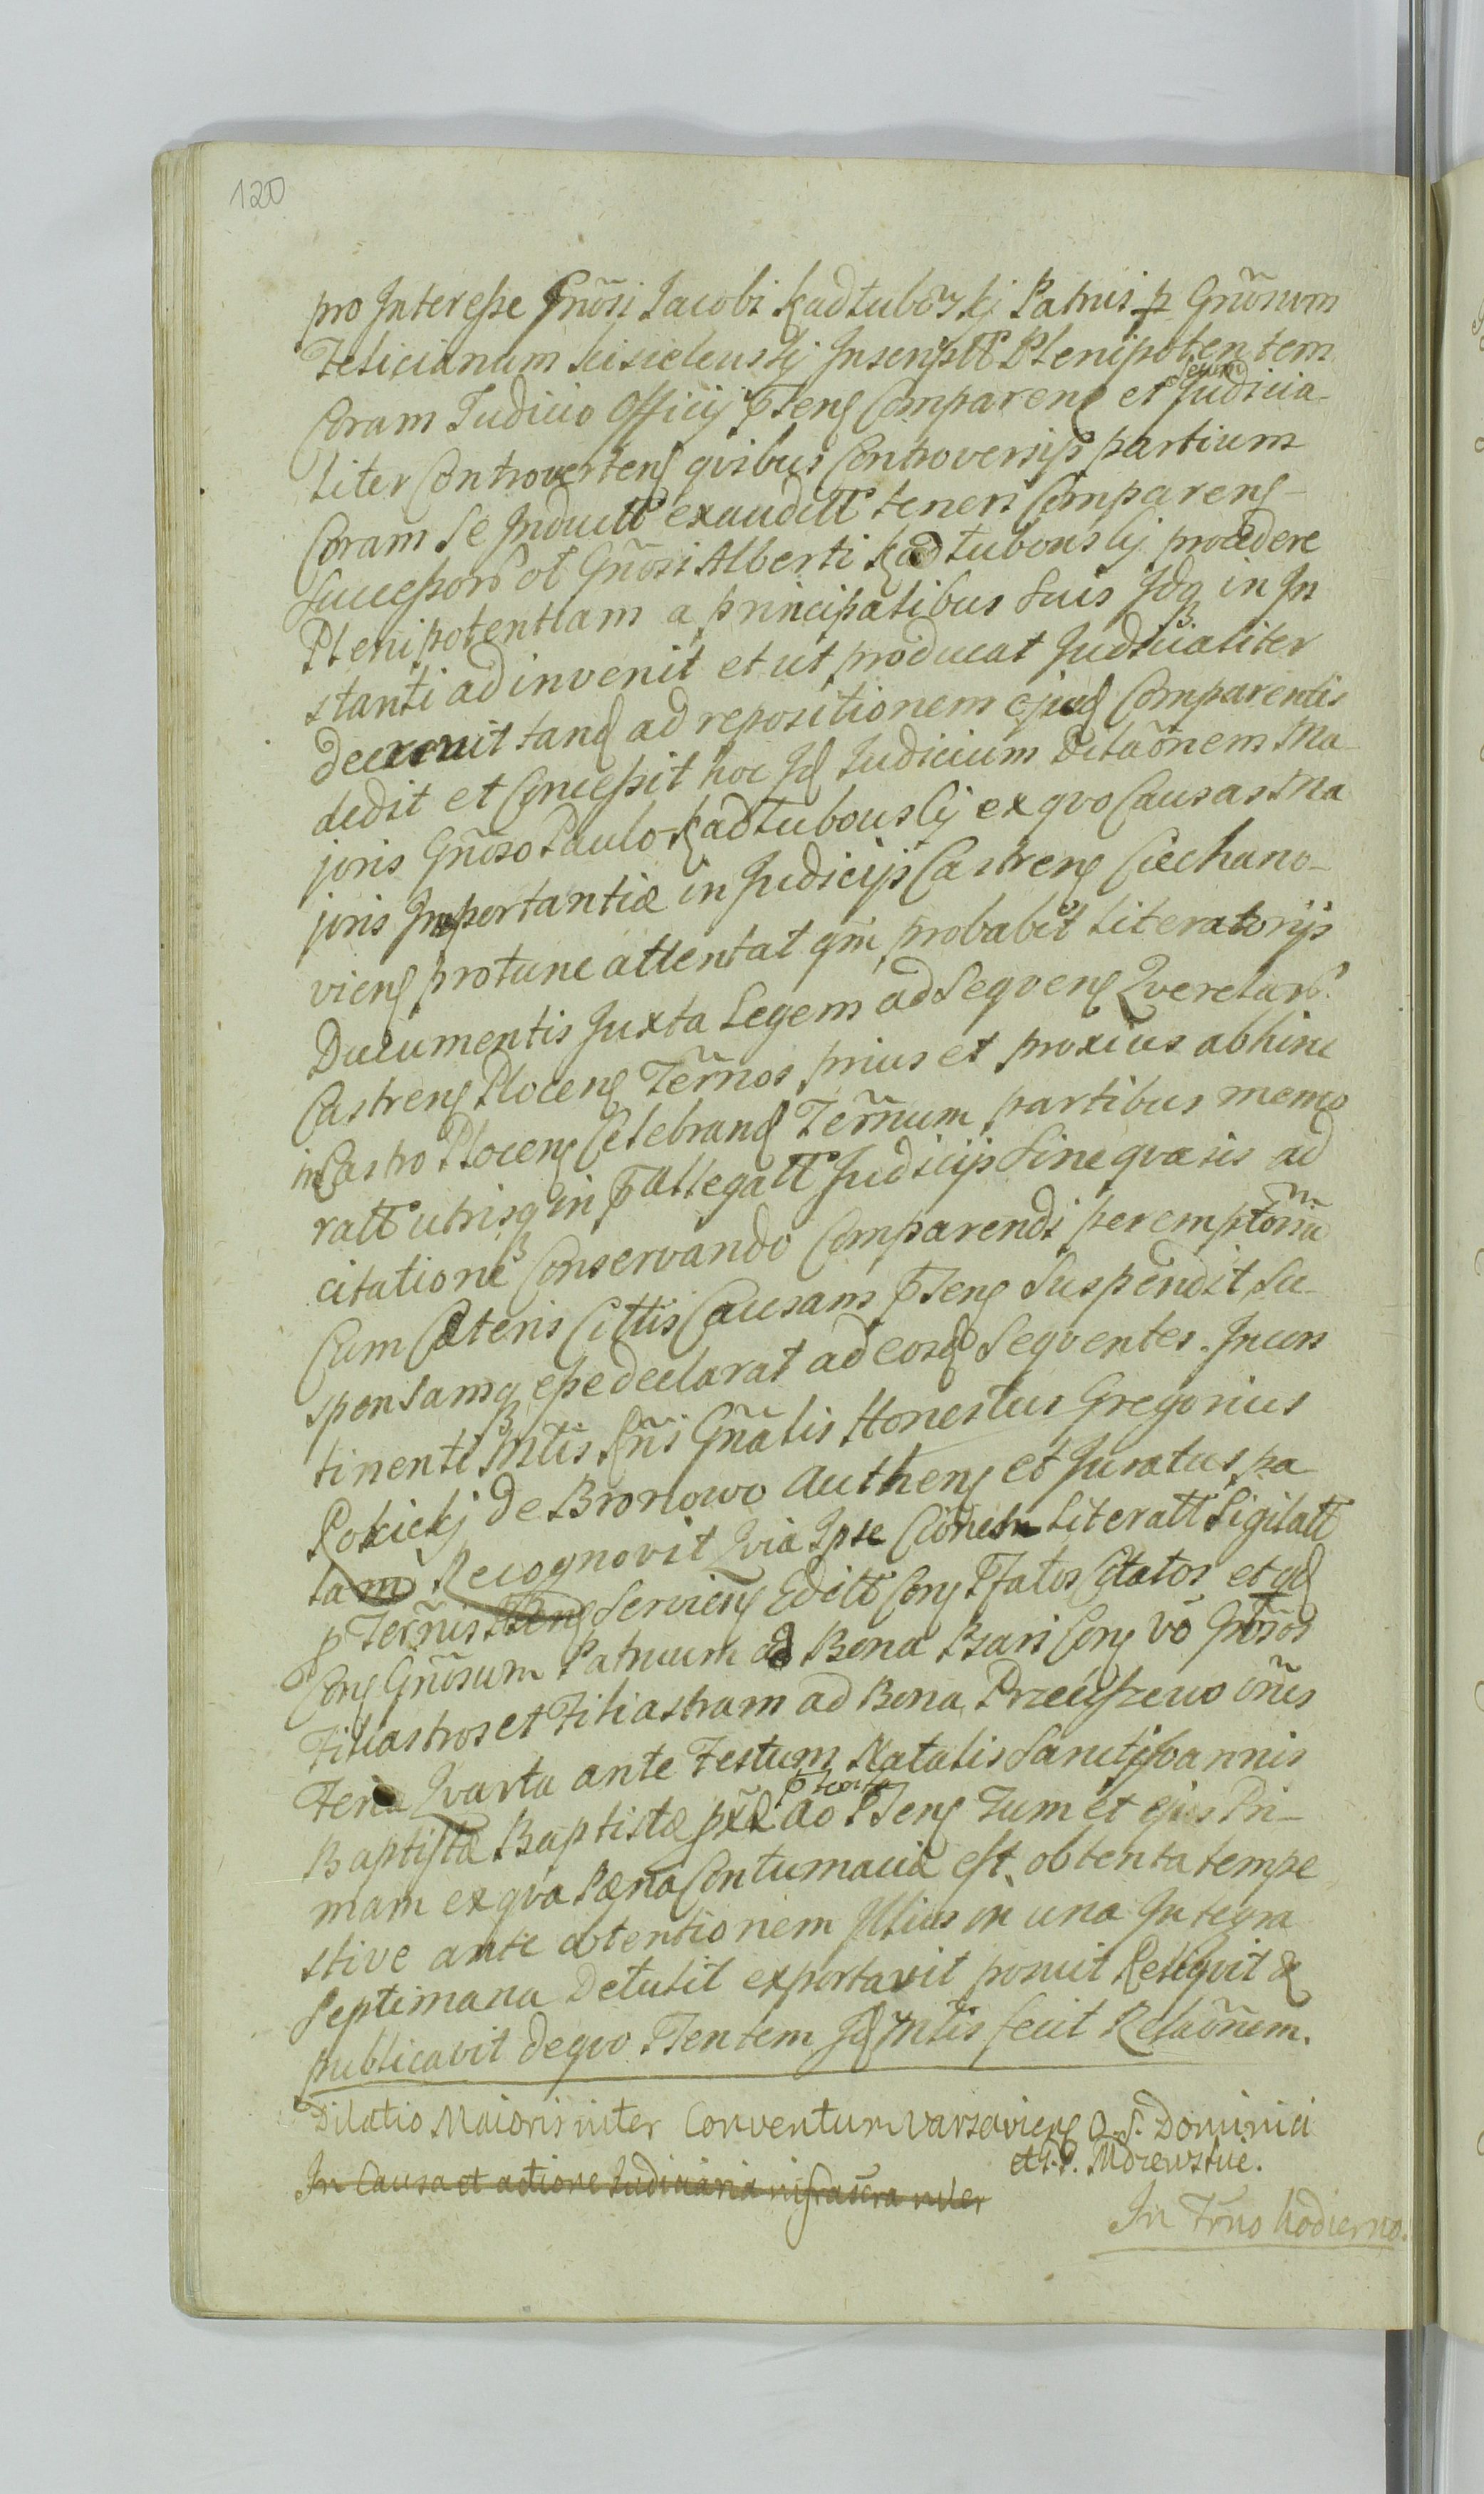 120
pro Interesse Gñosi Jacobi Kadłubowskj Patrui p Gñosum
Felicianum Inscriptt Plenipotentem
Coram Judicio Officij pñens Comparens et secum Judicia-
liter Controvertens qvibus Controversijs partium
Coram Se Inductt exauditt teneri Comparens
Successor ol Gñosi Alberti Kadłubouskj procedere
Plenipotentiam a principalibus Suis Idq in In
stanti adinvenit et ut producat Judicialiter
decrevit tand ad repositionem ejusd Comparentis
dedit et Concessit hoc Id Judicium Dilaõnem Ma
joris Gñoso Paulo Kadłubouskj ex qvo Causas Ma
joris Importantiæ in Judicijs Castrens Ciechano-
viens protunc attentat qm probabit Literatorijs
Documentis Juxta Legem ad Seqvens Qverelar
Castrens Plocens Terños prius et proxius abhinc
in Castro Plocens Celebrand Terñum partibus memo
ratt utrisq in p allegatt Judicijs Sine qvavis ad
citatione Conservando Comparendi peremptoriũ
Cum Cæteris Cittis Causam pñens Suspendit Su-
spensamq esse declarat ad eosd Seqventes. Incon
tinenti Mtis Rñi Gñalis Honestus Gregorius
Rokickj de Bronowo authens et Juratus pa
lam Recognovit Qvia Ipse Ciõnem Literatt Sigilatt
p Terñis Serviens Editt Cong Pfatos Citatos et qd
Cong Gñosum Patruum ad Bona Bzari Cong vo Gñsos
Filiastros et Filiastram ad Bona Przeciszewo oñes
Feria Qvarta ante Festum Natalis Sancti Joannis
Baptistæ Baptistæ pxæ ao pñens Tum et ejus Pri-
mam ex qva Pæna Contumaciæ est obtenta tempe
stive ante obtentionem Illius in una Integra
Septimana Detulit exportavit posuit Reliqvit &
publicavit de qvo pñentem Id Mtis fecit Relaõnem.
Dilatio Maioris inter Conventum Varsaviens O. S. Dominici
et P. P. Mdzewskie.
In Causa et actione Judiciaria infrascra inter
In Trno hodierno.